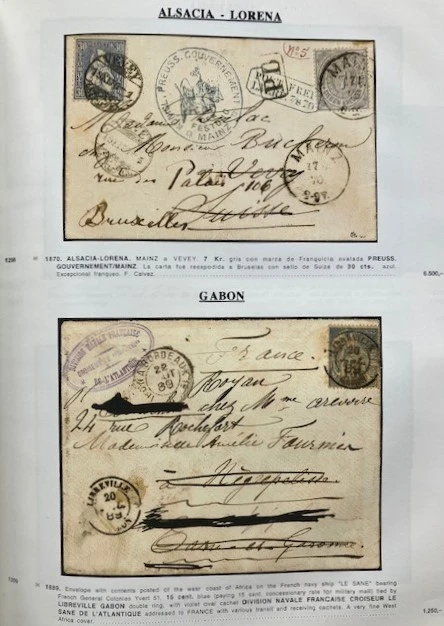 ALSACIA - LORENA
VEVEY
KÖNIGL. PREUSS. GOUVERNEMENT
FESTUNG MAINZ
PD
No 5
MAINZ
17
Madame
chez Monsieur Bucherer
rue des Palais 106
Vevey
Suisse
Bruxelles
MAINZ
17
70
1870. ALSACIA-LORENA. MAINZ a VEVEY. 7 Kr. gris con marca de Franquicia ovalada PREUSS.
GOUVERNEMENT/MAINZ. La carta fue reexpedida a Bruselas con sello de Suiza de 30 cts. azul.
Excepcional franqueo. F. Calvez.
6.500,-
GABON
DIVISION NAVALE FRANÇAISE
DE L'ATLANTIQUE
BORDEAUX
22
89
20
France.
Royan
chez Mme
24 rue Rochefort
Mademoiselle Amélie Fournier
à
LIBREVILLE
20
GABON
1889. Envelope with contents posted of the wear coast of Africa on the French navy ship "LE SANE" bearing
French General Colonies Yvert 51, 15 cent. blue (paying 15 cent. concessionary rate for military mail) tied by
LIBREVILLE GABON double ring, with violet oval cachet DIVISION NAVALE FRANCAISE CROISEUR LE
SANE DE L'ATLANTIQUE addressed to FRANCE with various transit and receiving cachets. A very fine West
Africa cover.
1.250,-